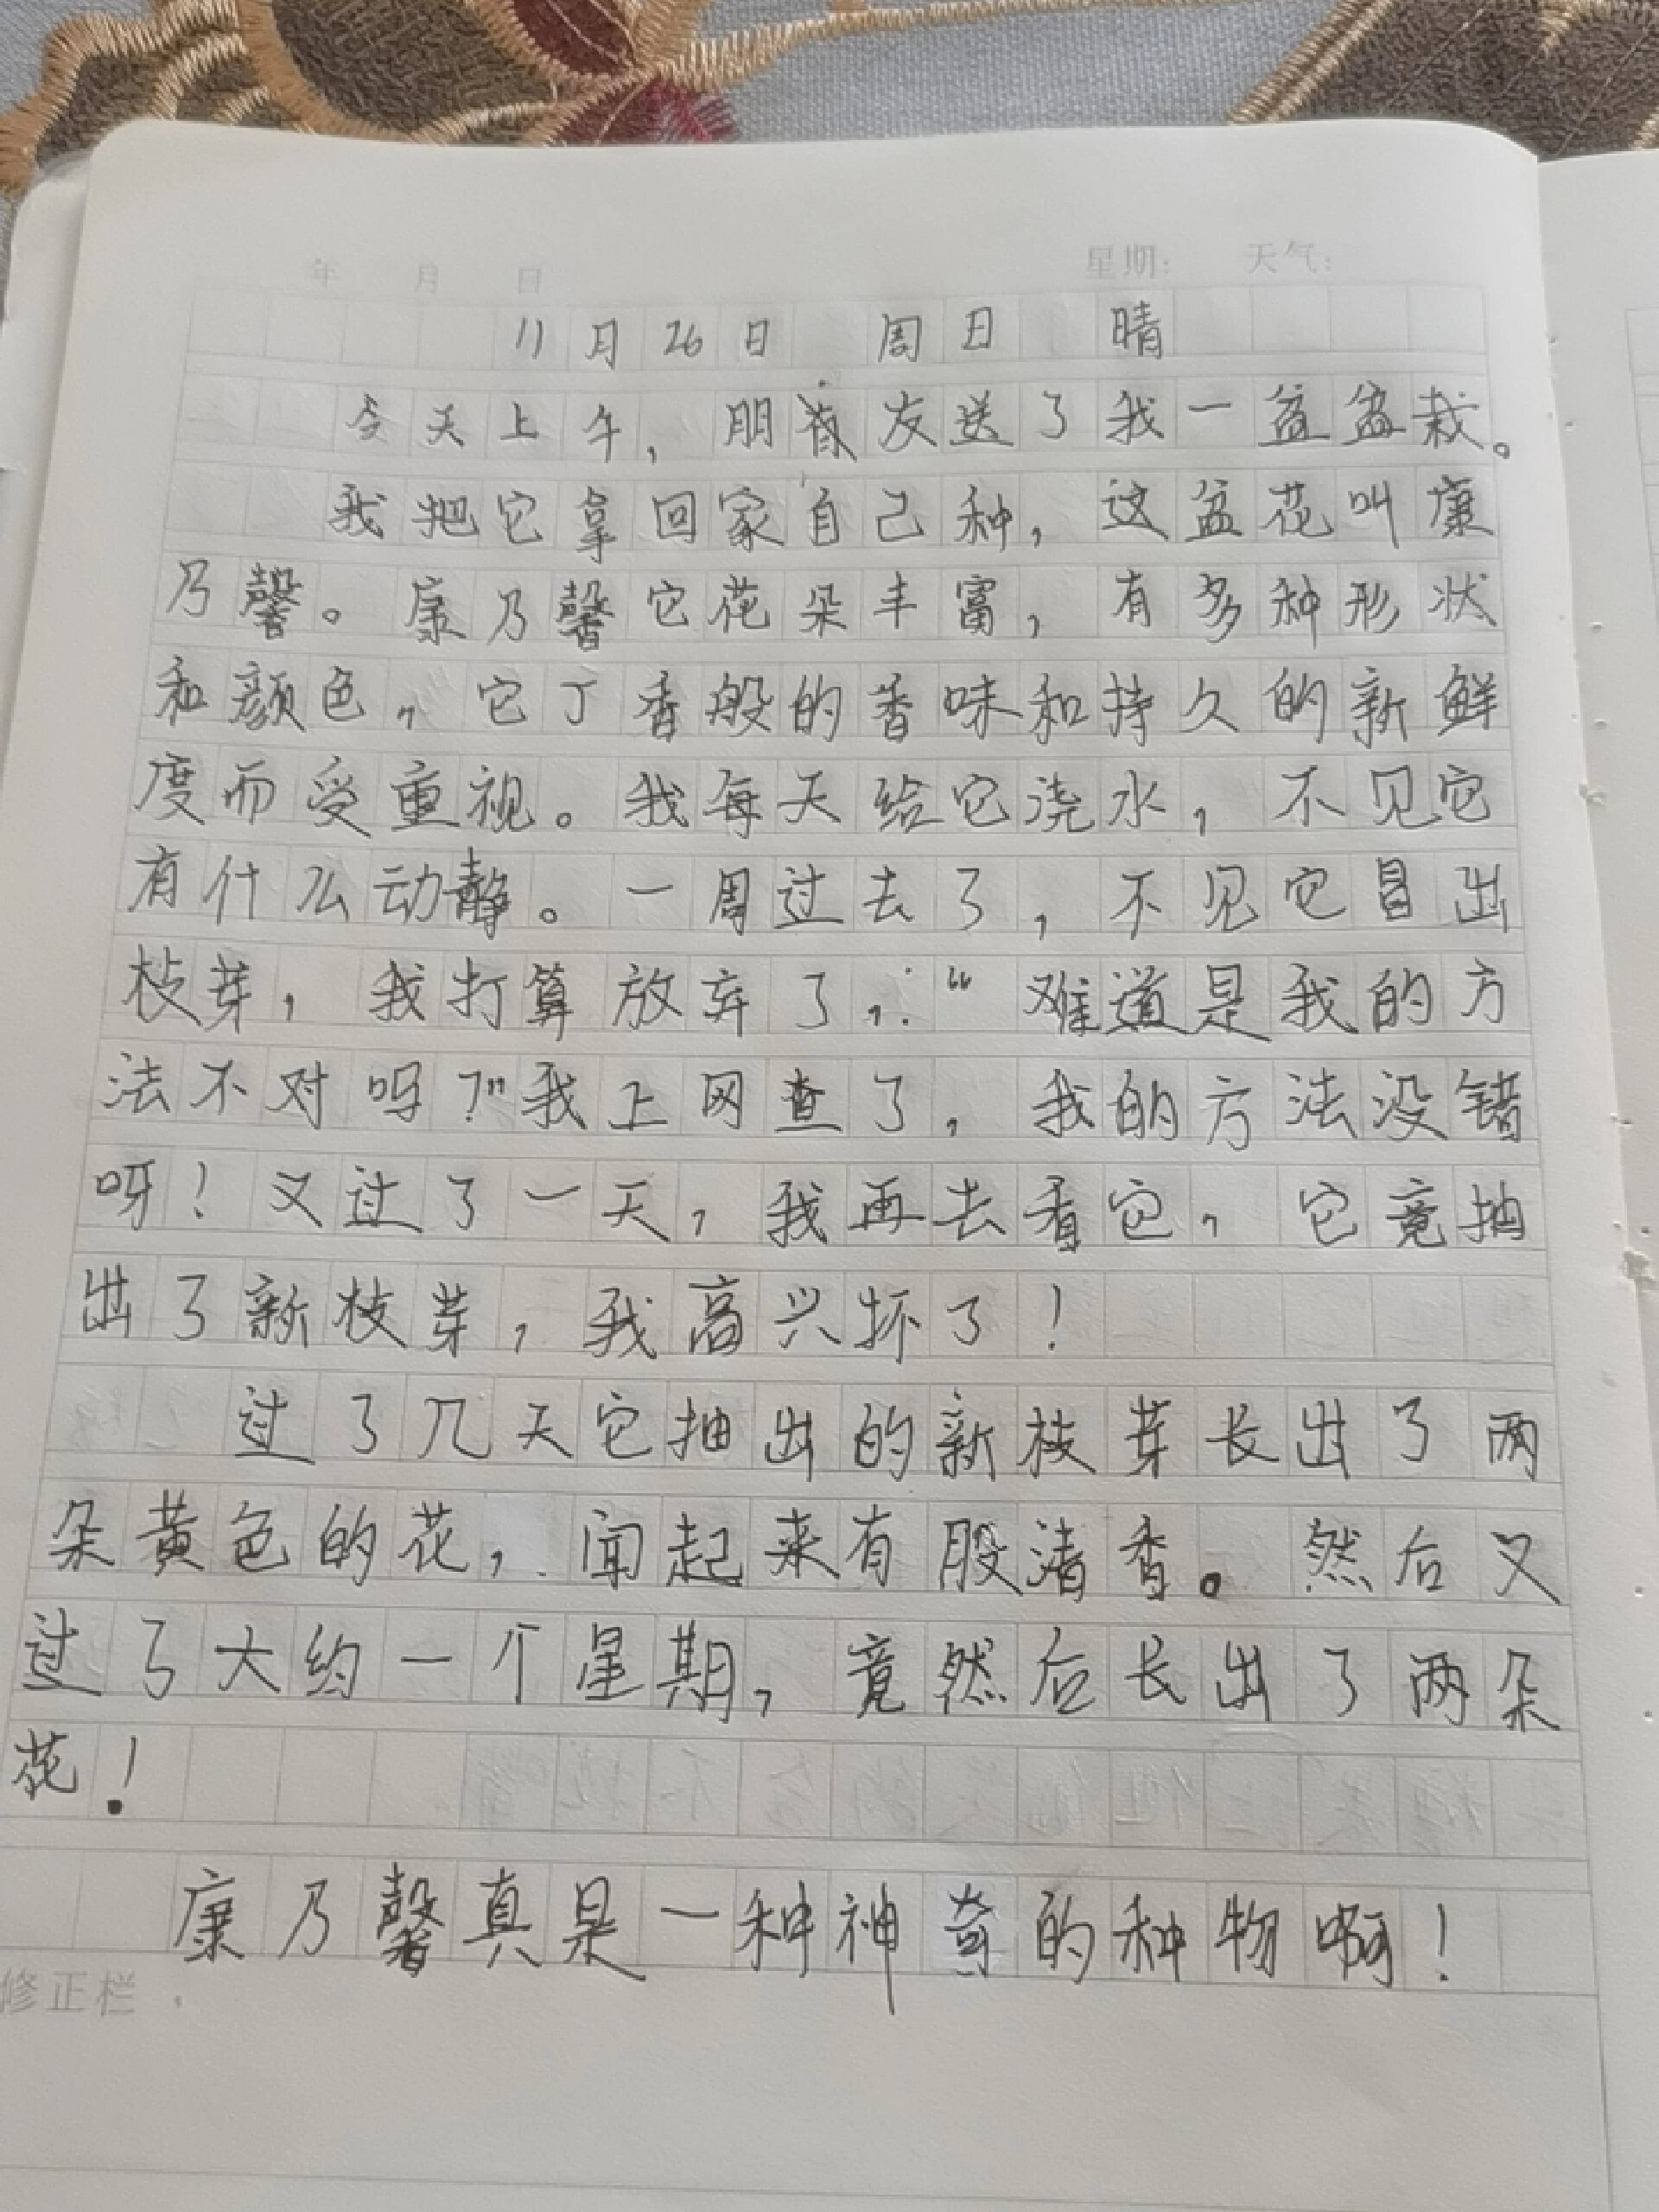 年 月 日 星期: 天气:
11月26日 周日 晴
今天上午,朋友送了我一盆盆栽。
我把它拿回家自己种,这盆花叫康
乃馨。康乃馨它花朵丰富,有多种形状
和颜色,它丁香般的香味和持久的新鲜
度而受重视。我每天给它浇水,不见它
有什么动静。一周过去了,不见它冒出
枝芽,我打算放弃了,:“难道是我的方
法不对吗?”我上网查了,我的方法没错
呀!又过了一天,我再去看它,它竟抽
出了新枝芽,我高兴坏了!
过了几天它抽出的新枝芽长出了两
朵黄色的花,闻起来有股清香。然后又
过了大约一个星期,竟然后长出了两朵
花!
康乃馨真是一种神奇的种物啊!
修正栏